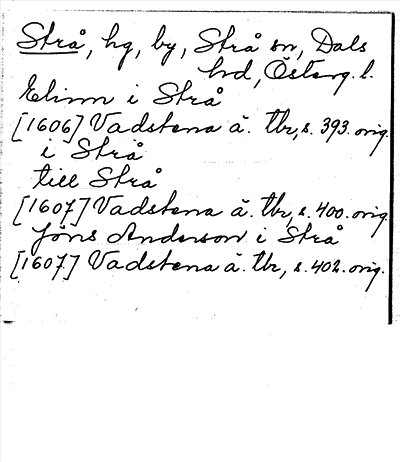 Strå, hg, by, Strå sn, Dals
hd, Österg. l.
Elinn i Strå
[1606] Vadstena ä. tbr, s. 393. orig.
i Strå
till Strå
[1607] Vadstena ä. tbr, s. 400. orig.
Jöns Anderson i Strå
[1607] Vadstena ä. tbr, s. 402. orig.